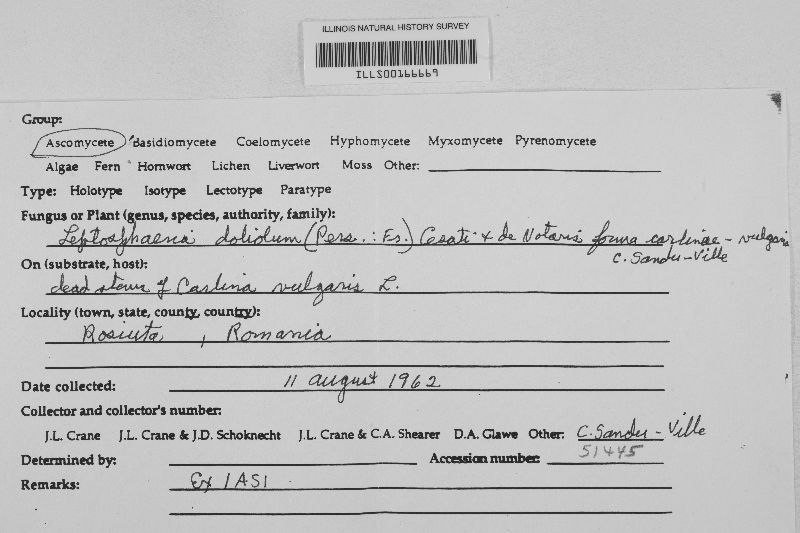 ILLINOIS NATURAL HISTORY SURVEY
ILLS00166669
Group:
Ascomycete Basidiomycete Coelomycete Hyphomycete Myxomycete Pyrenomycete
Algae Fern Hornwort Lichen Liverwort Moss Other:
Type: Holotype Isotype Lectotype Paratype
Fungus or Plant (genus, species, authority, family):
Leptosphaeria doliolum (Pers.: Fr.) Cesati & de Notaris forma carlinae-vulgaris
C. Sandu-Ville
On (substrate, host):
dead stems of Carlina vulgaris L.
Locality (town, state, county, country):
Rosiuta, Romania
Date collected: 11 August 1962
Collector and collector's number:
J.L. Crane J.L. Crane & J.D. Schoknecht J.L. Crane & C.A. Shearer D.A. Glawe Other: C. Sandu-Ville
Determined by: Accession number: 51445
Remarks: Ex IASI